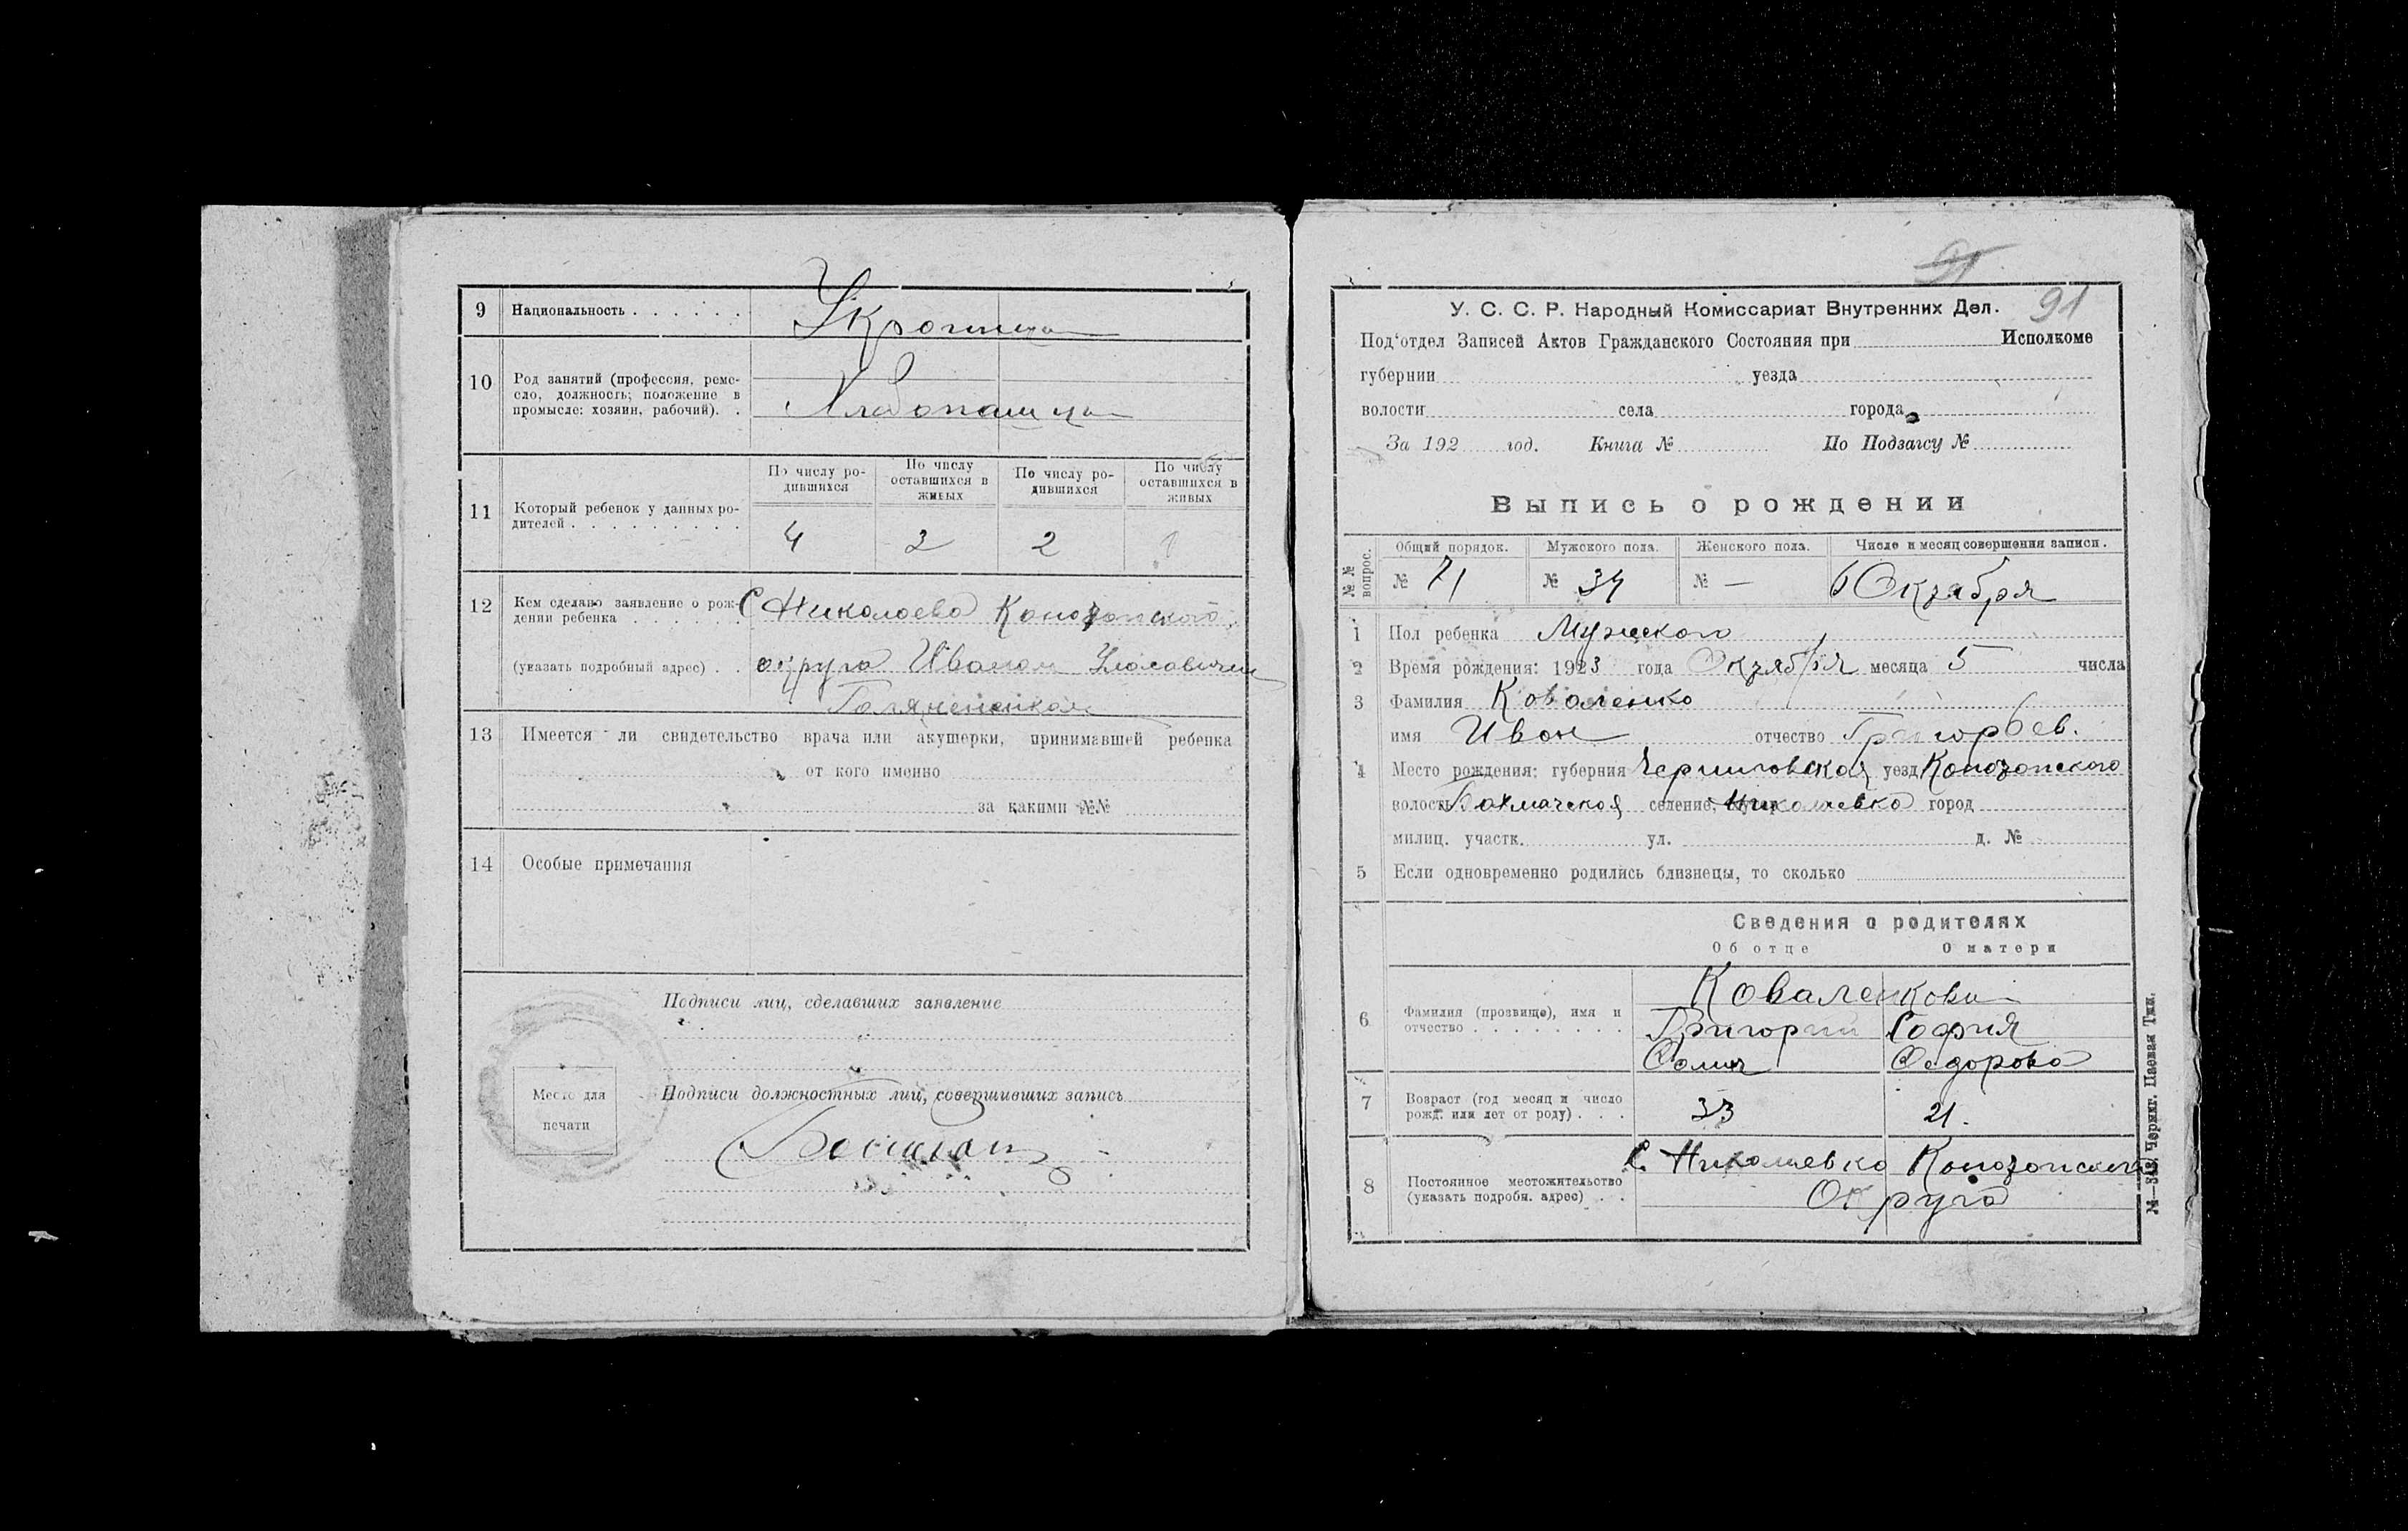 9 Национальность . . . . . . Украинцы
10 Род занятий (профессия, реме-
сло, должность; положение в
промысле: хозяин, рабочий). . Хлебопашцы
11 Который ребенок у данных ро-
дителей . . . . . . . . .
По числу ро-
дившихся
По числу
оставшихся в
живых
По числу ро-
дившихся
По числу
оставшихся в
живых
4 2 2 1
12 Кем сделано заявление о рож-
дении ребенка . . . . . . С Николаевка Конотопского
(указать подробный адрес) . . округа Иваном
13 Имеется ли свидетельство врача или акушерки, принимавшей ребенка
от кого именно
за какими №№
14 Особые примечания
Подписи лиц, сделавших заявление
Место для
печати
Подписи должностных лиц, совершивших запись
91
91
У. С. С. Р. Народный Комиссариат Внутренних Дел.
Под‘отдел Записей Актов Гражданского Состояния при Исполкоме
губернии уезда
волости села города
За 192 год. Книга № По Подзагсу №
Выпись о рождении
№ № вопрос.
Общий порядок. Мужского пола. Женского пола. Число и месяц совершения записи.
№ 71 № 34 № — 6 Октября
1 Пол ребенка Мужского
2 Время рождения: 1923 года Октября месяца 5 числа
3 Фамилия Коваленко
имя Иван отчество Григорьев.
4 Место рождения: губерния Черниговская уезд Конотопского
волость Бахмачская селение, Николаевка город
милиц. участк. ул. д. №
5 Если одновременно родились близнецы, то сколько
Сведения о родителях
Об отце О матери
6 Фамилия (прозвище), имя и
отчество . . . . . . . .
Коваленкови
Григорий София
Федорова
7 Возраст (год месяц и число
рожд. или лет от роду) . . . 33 21.
8 Постоянное местожительство
(указать подробн. адрес) . .
С. Николаевка Конотопского
Округа
№—343. Черниг. Паевая Тип.